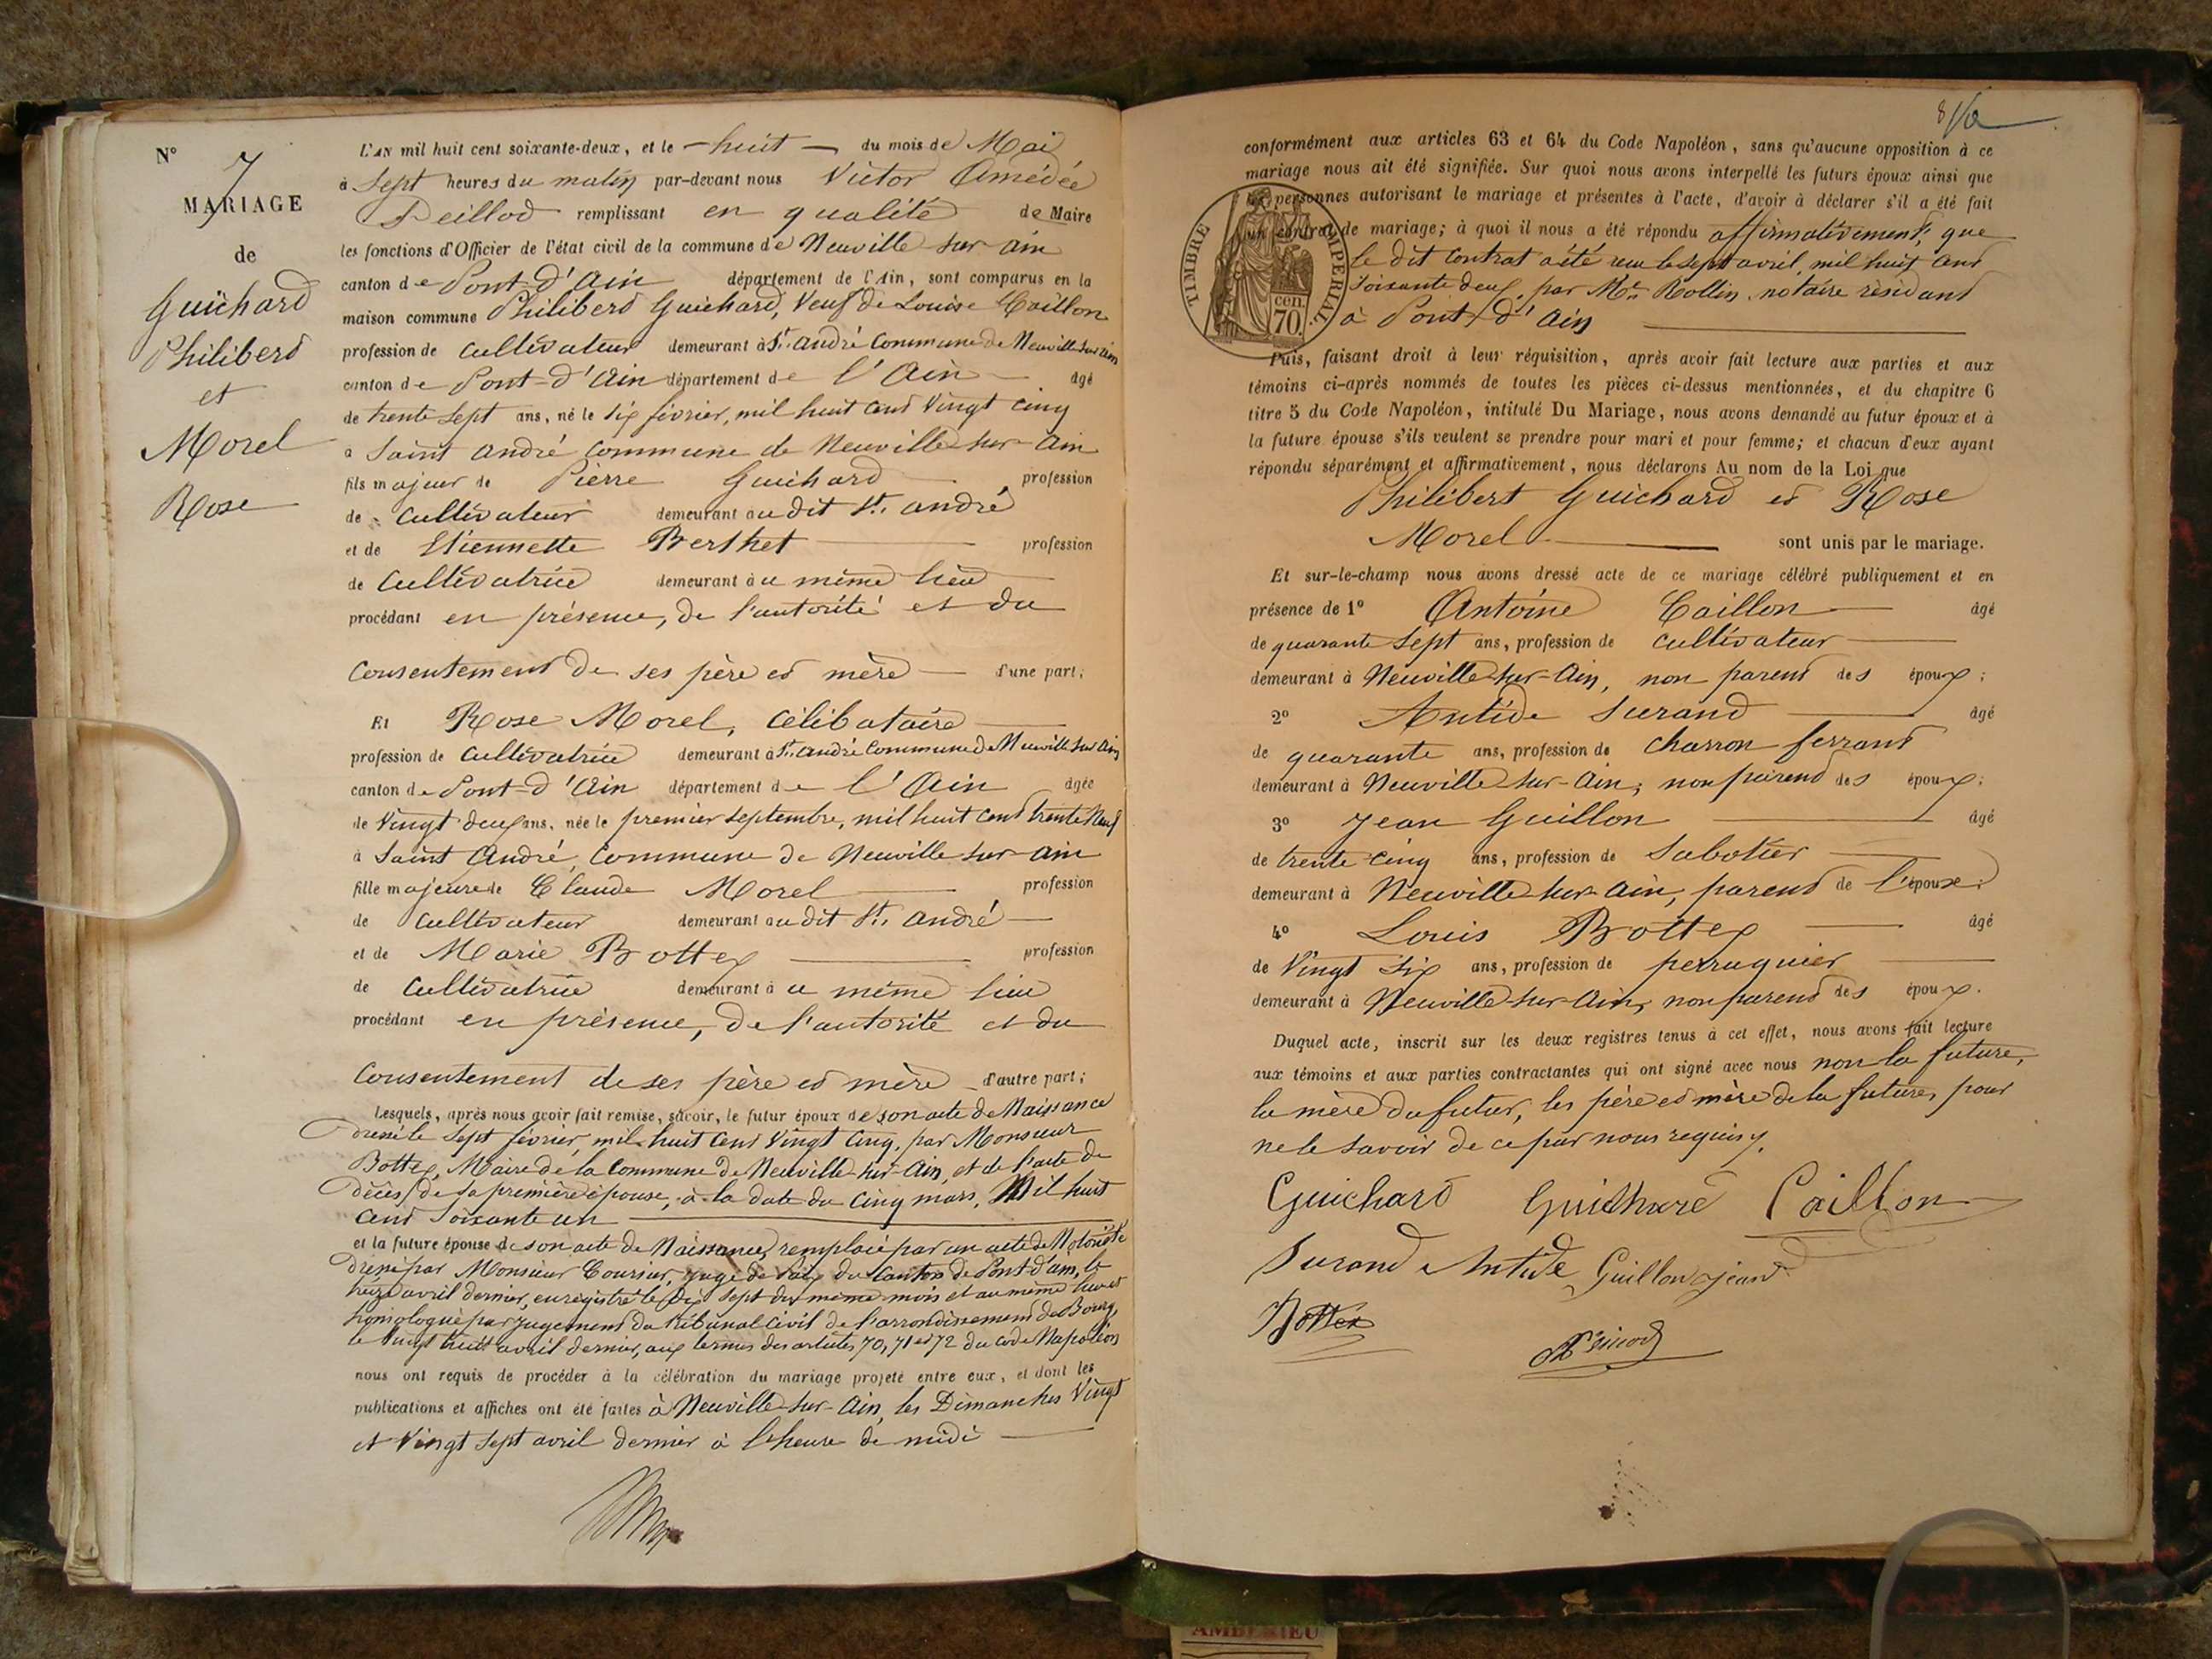 N° 7
MARIAGE
de
Guichard
Philibert
et
Morel
Rose
L'AN mil huit cent soixante-deux, et le huit du mois de Mai
à Sept heures du matin par-devant nous Victor Amédée
remplissant en qualité de Maire
les fonctions d'Officier de l'état civil de la commune de Neuville sur ain
canton de Pont-d'Ain département de l'Ain, sont comparus en la
maison commune Philibert Guichard, Veuf de Louise Caillon
profession de Cultivateur demeurant à St. andré Commune de Neuville sur ain
canton de Pont-d'Ain département de l'Ain âgé
de trente sept ans, né le six février, mil huit cent vingt cinq
à Saint andré Commune de Neuville sur-ain
fils majeur de Pierre Guichard profession
de Cultivateur demeurant audit St. andré
et de Etiennette Berthet profession
de Cultivatrice demeurant à ce même lieu
procédant en présence, de l'autorité et du
Consentement de ses père et mère d'une part;
Et Rose Morel, célibataire
profession de Cultivatrice demeurant à St. andré Commune de Neuville sur Ain
canton de Pont-d'Ain département de l'Ain âgée
de Vingt deux ans, née le premier septembre, mil huit cent trente neuf
à Saint André, Commune de Neuville sur-ain
fille majeure de Claude Morel profession
de Cultivateur demeurant audit St. andré
et de Marie Bottex profession
de Cultivatrice demeurant à ce même lieu
procédant en présence, de l'autorité et du
Consentement de ses père et mère d'autre part;
Lesquels, après nous avoir fait remise, savoir, le futur époux de son acte de Naissance
dressé le sept février, mil huit cent vingt cinq, par Monsieur
Bottex, Maire de la Commune de Neuville sur-Ain, et de l'acte de
décès de sa première épouse, à la date du cinq mars, Mil huit
cent soixante un
et la future épouse de son acte de Naissance, remplacé par un acte de Notoriété
dressé par Monsieur Coursier, juge de Paix du Canton de Pont-d'ain, le
treize avril dernier, enregistré le dix sept du même mois et au même lieu et
homologué par jugement du tribunal Civil de l'arrondissement de Bourg,
le vingt huit avril dernier, aux termes des articles 70, 71 et 72 du Code Napoléon
nous ont requis de procéder à la célébration du mariage projeté entre eux, et dont les
publications et affiches ont été faites à Neuville sur-Ain, les Dimanches Vingt
et Vingt sept avril dernier à l'heure de midi
8
conformément aux articles 63 et 64 du Code Napoléon, sans qu'aucune opposition à ce
mariage nous ait été signifiée. Sur quoi nous avons interpellé les futurs époux ainsi que
les personnes autorisant le mariage et présentes à l'acte, d'avoir à déclarer s'il a été fait
un contrat de mariage; à quoi il nous a été répondu affirmativement, que
le dit Contrat a été reçu le sept avril, mil huit cent
soixante deux, par Me. Rollin, notaire résidant
à Pont-d'Ain
TIMBRE IMPERIAL
cen.
70.
Puis, faisant droit à leur réquisition, après avoir fait lecture aux parties et aux
témoins ci-après nommés de toutes les pièces ci-dessus mentionnées, et du chapitre 6
titre 5 du Code Napoléon, intitulé Du Mariage, nous avons demandé au futur époux et à
la future épouse s'ils veulent se prendre pour mari et pour femme; et chacun d'eux ayant
répondu séparément et affirmativement, nous déclarons Au nom de la Loi que
Philibert Guichard et Rose
Morel sont unis par le mariage.
Et sur-le-champ nous avons dressé acte de ce mariage célébré publiquement et en
présence de 1° Antoine Caillon âgé
de quarante sept ans, profession de Cultivateur
demeurant à Neuville sur-Ain, non parent des époux;
2° Antide Durand âgé
de quarante ans, profession de charron ferrant
demeurant à Neuville sur-Ain, non parent des époux;
3° Jean Guillon âgé
de trente cinq ans, profession de Sabotier
demeurant à Neuville sur ain, parent de l'épouse;
4° Louis Bottex âgé
de Vingt six ans, profession de perruquier
demeurant à Neuville sur-Ain, non parent des époux.
Duquel acte, inscrit sur les deux registres tenus à cet effet, nous avons fait lecture
aux témoins et aux parties contractantes qui ont signé avec nous non la future,
la mère du futur, les père et mère de la future, pour
ne le savoir de ce par nous requis.
Guichard Guichard Caillon
Durand Antide Guillon jean
Bottex
AMBERIEU